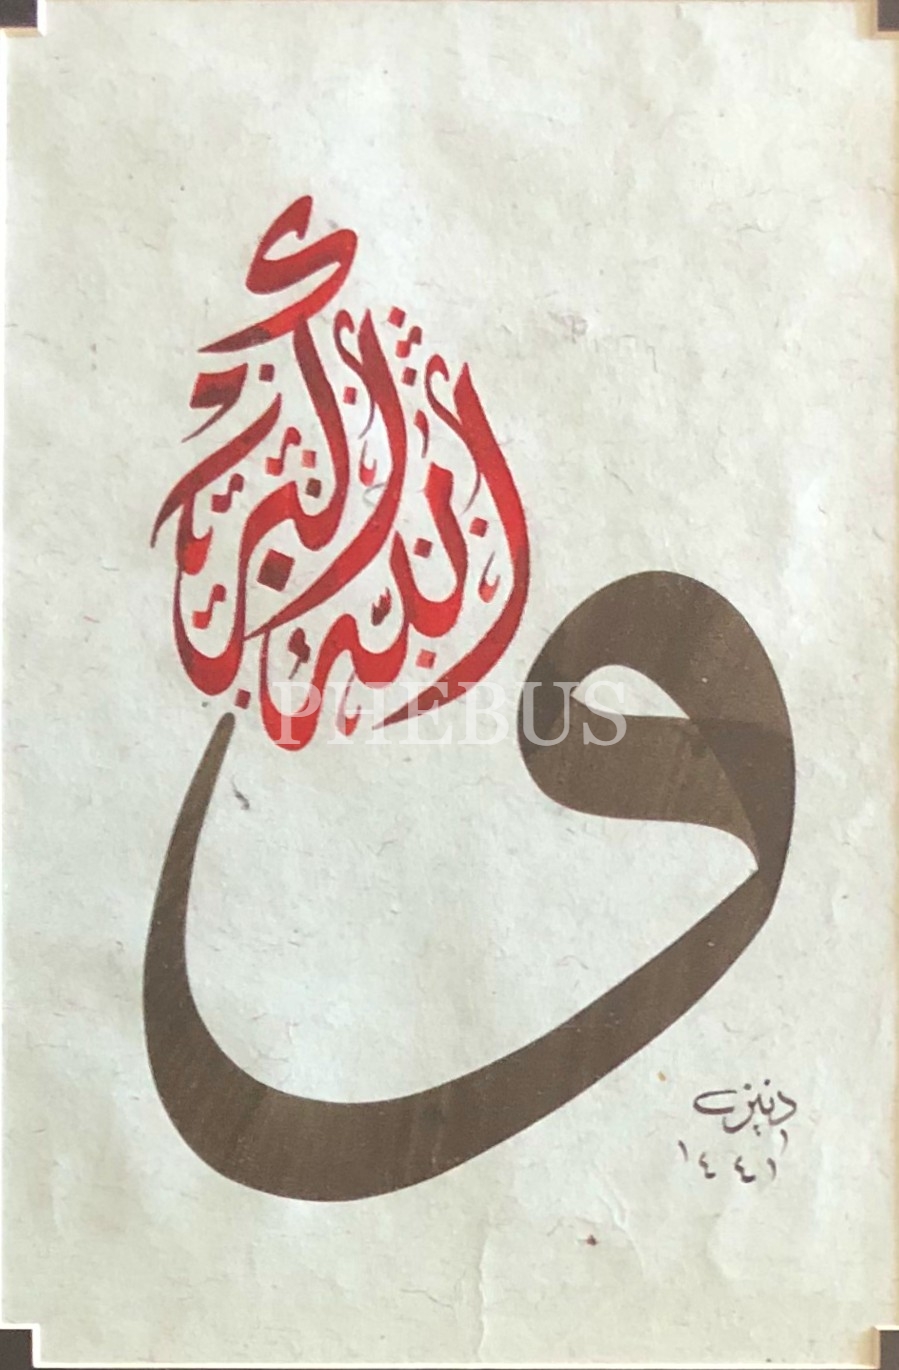 و الله أكبر
PHEBUS
دنيز
١٤٤١